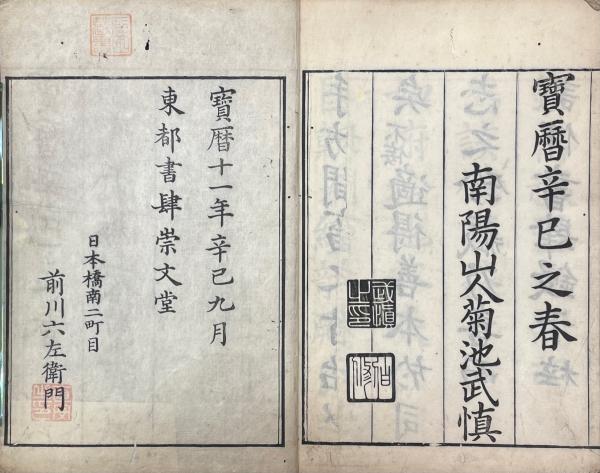 寶曆辛巳之春
南陽山人菊池武慎
武慎之印
伯修
寶曆十一年辛巳九月
東都書肆崇文堂
日本橋南二町目
前川六左衛門